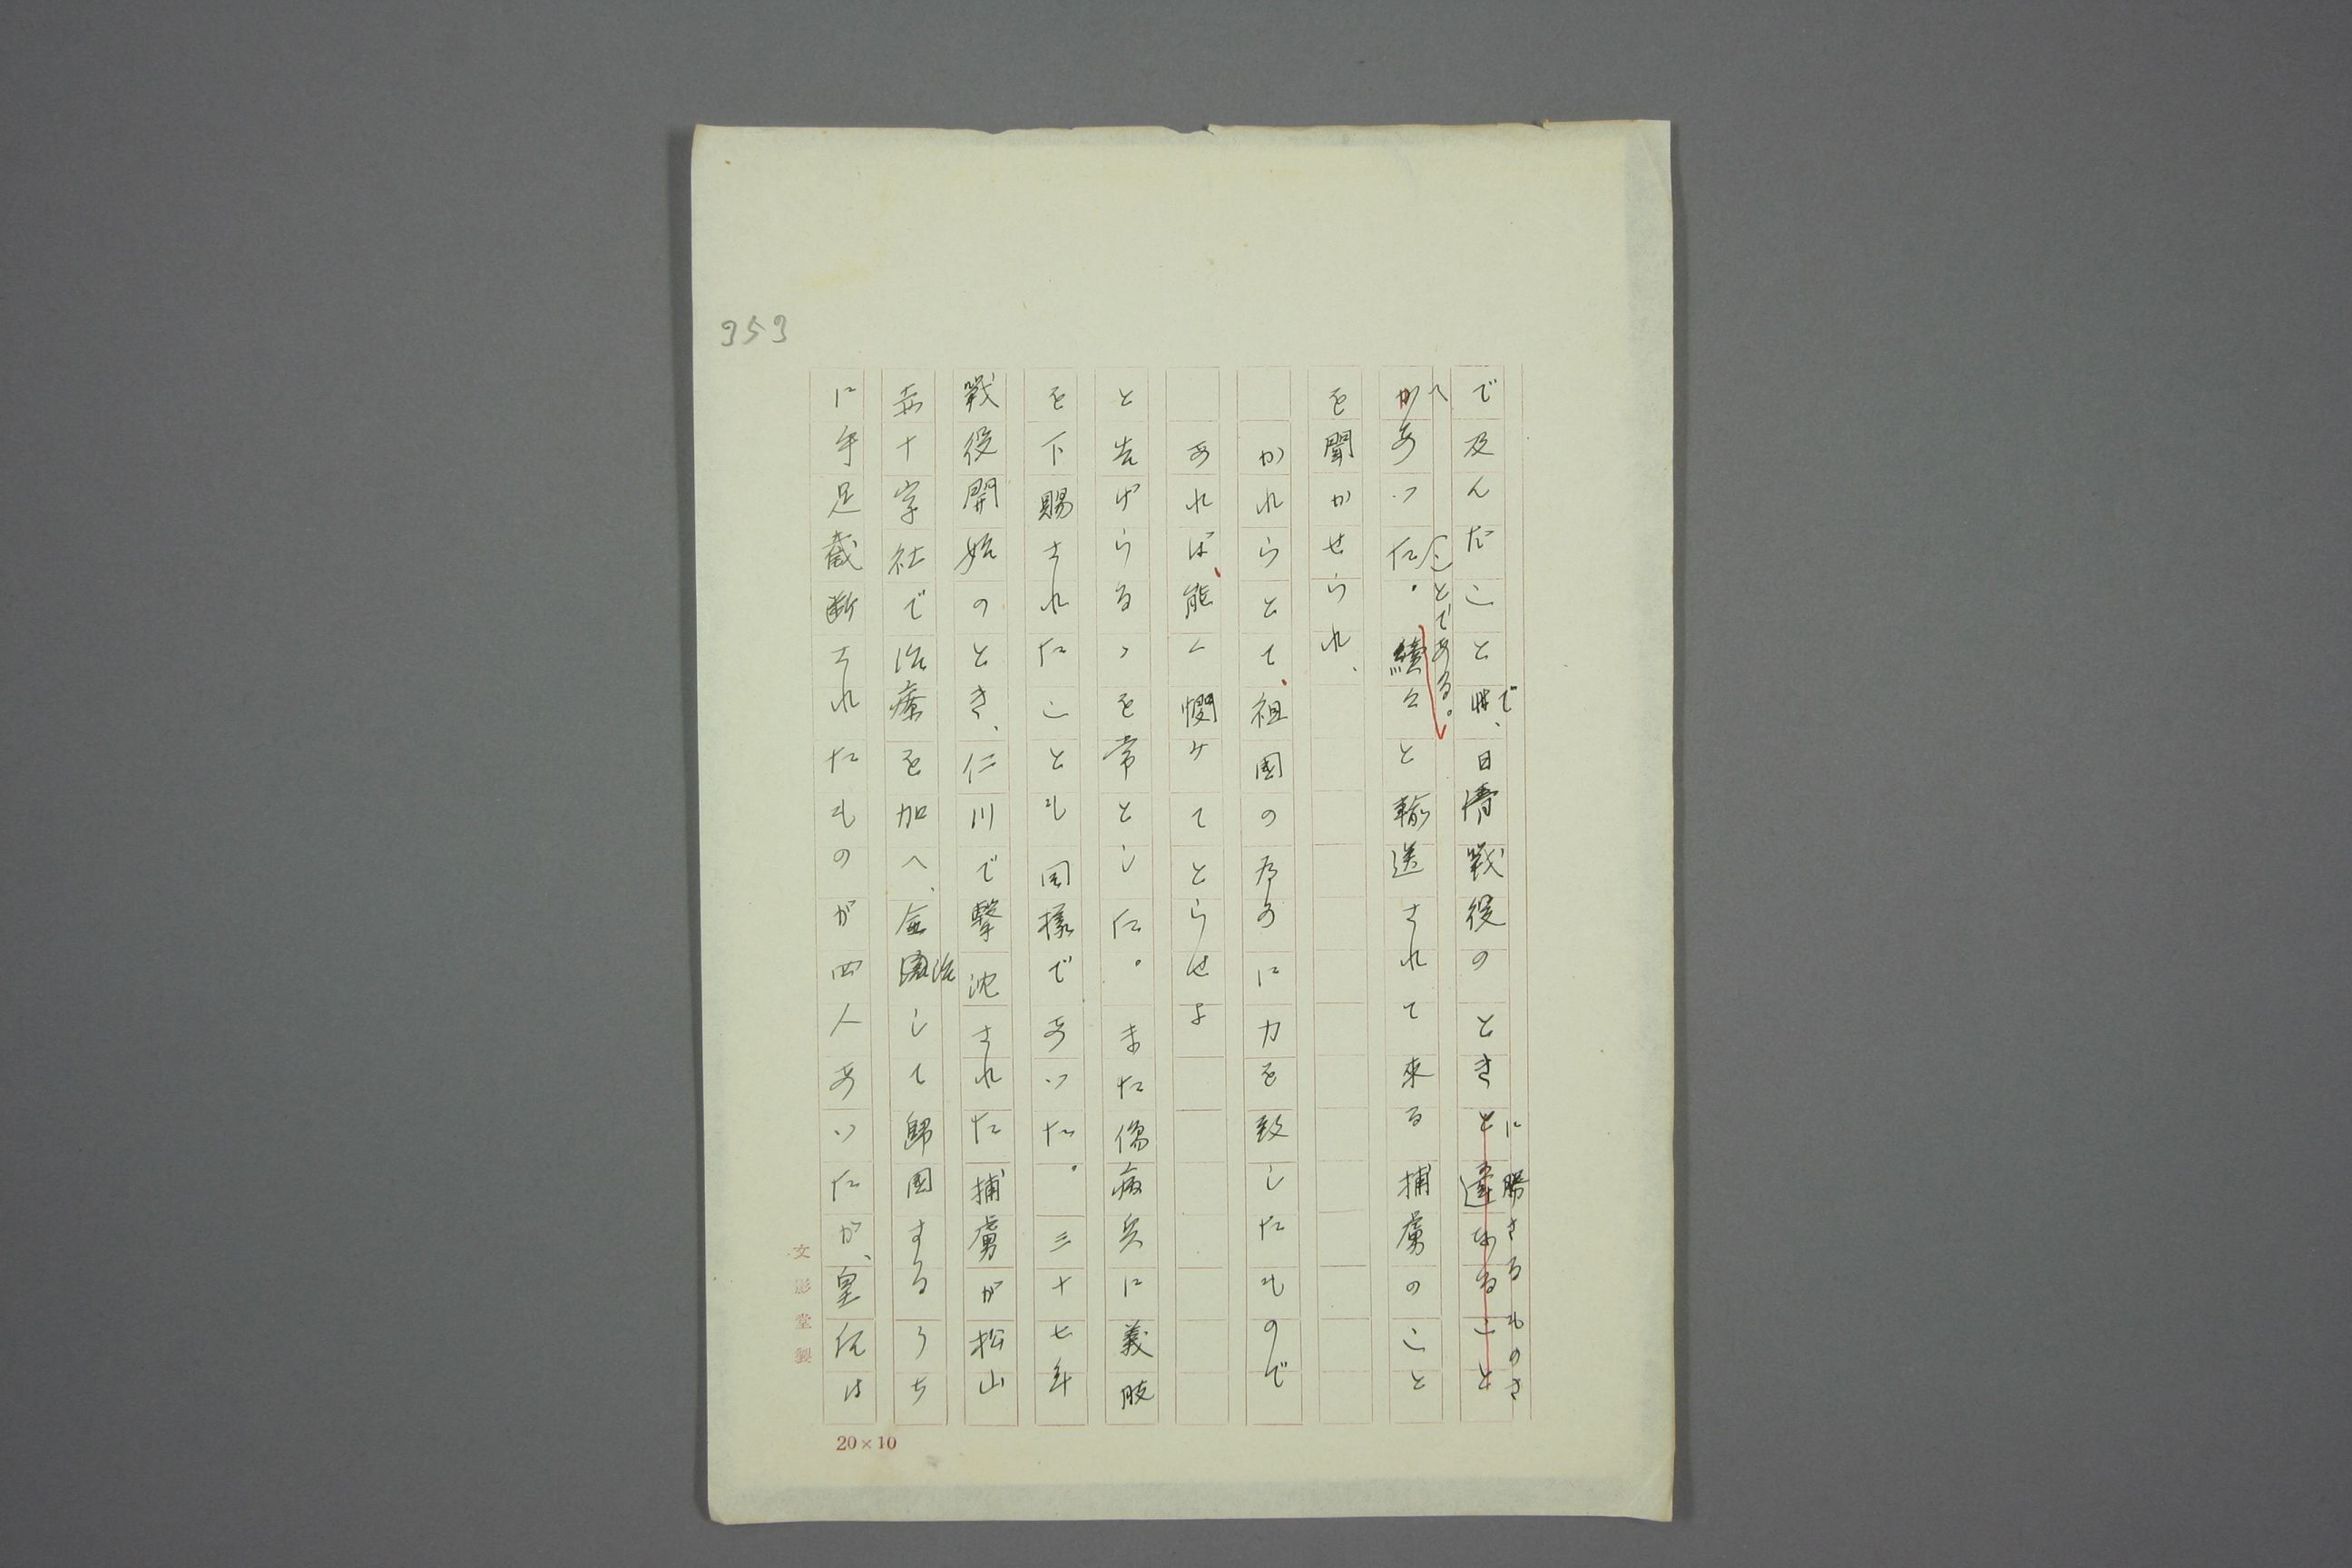 353
で及んだことで、日清戦役のときに勝さるものさ
へあつたことである。続々と輸送されて来る捕虜のこと
を聞かせられ、
かれらとて、祖国の為めに力を致したもので
あれば、能く憫みてとらせよ
と告げらるゝを常とした。また傷病兵に義肢
を下賜されたことも同様であつた。三十七年
戦役開始のとき、仁川で撃沈された捕虜が松山
赤十字社で治療を加へ、全治して帰国するうち
に手足截断されたものが四人あつたが、皇后は
文影堂製
20×10